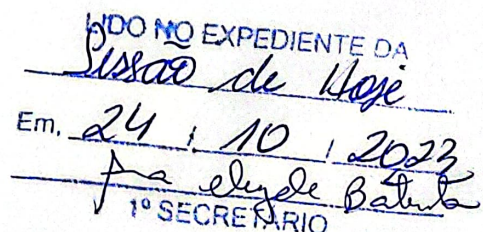 LIDO NO EXPEDIENTE DA
Sessão de Hoje
Em, 24 / 10 / 2023
Batista
1º SECRETÁRIO